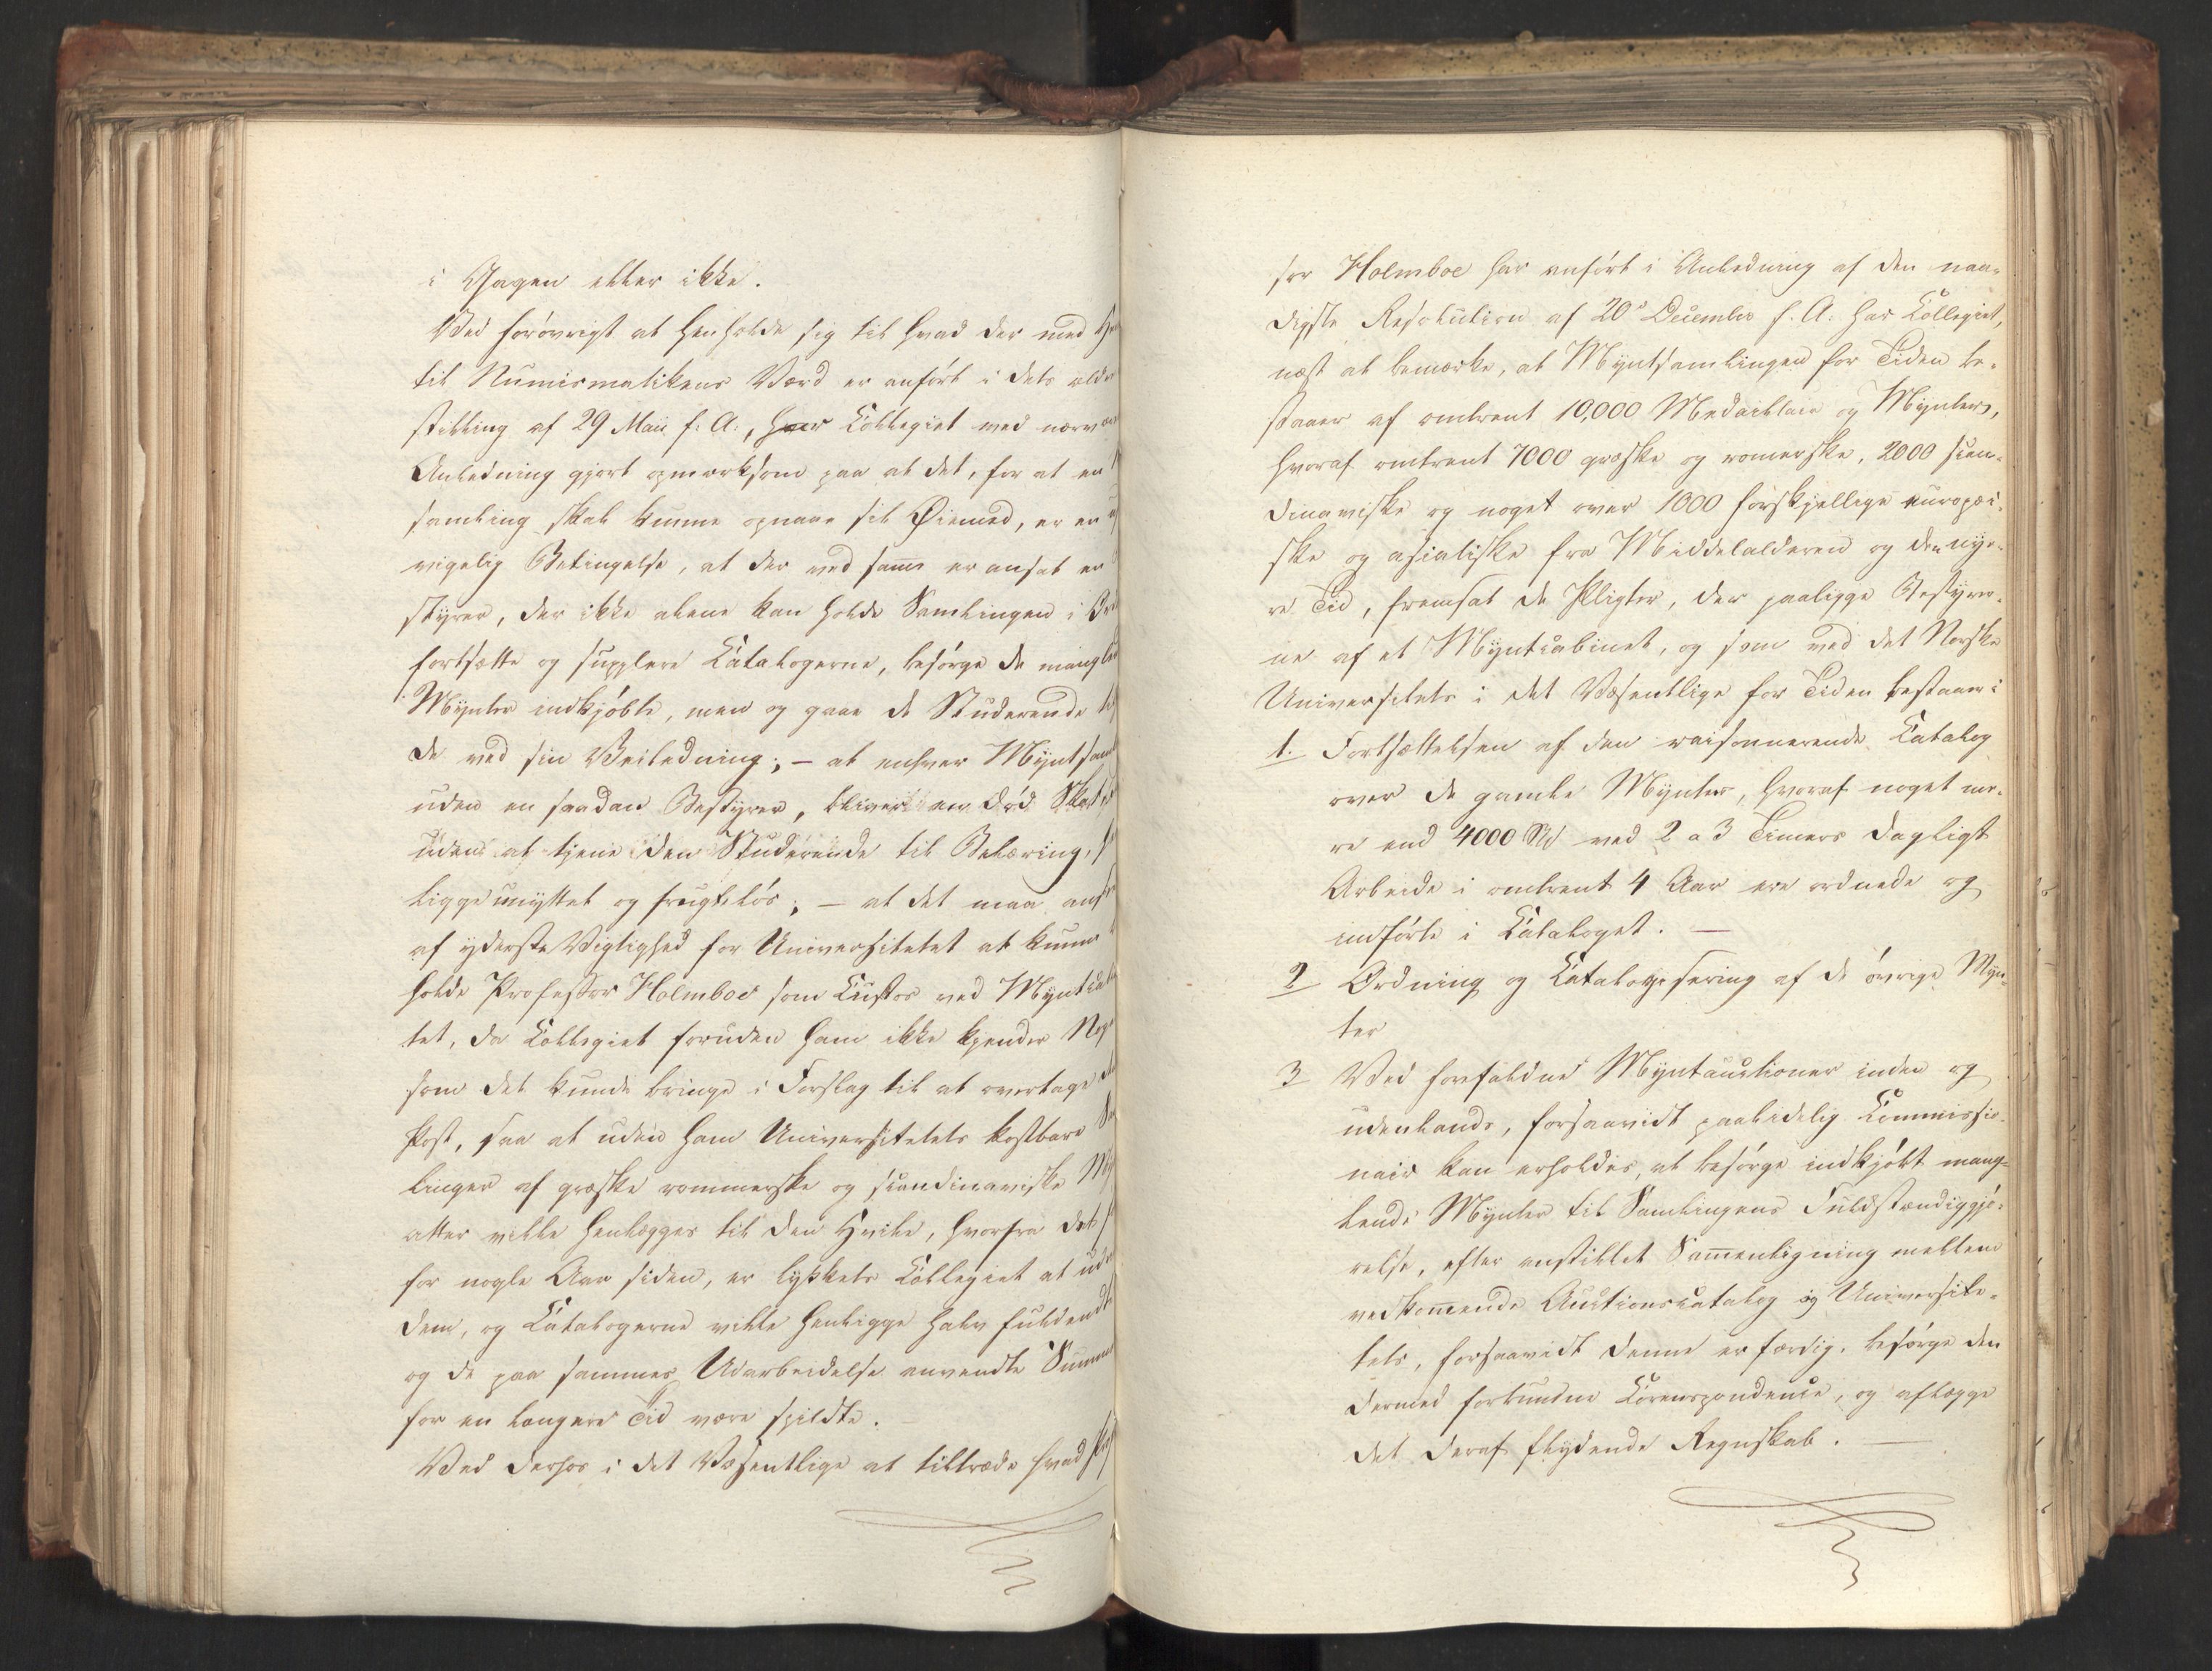 i Gagen eller ikke.
Ved forøvrigt at henholde sig til hvad der med
til Numismatikens Værd er anført i dets
stilling af 29 Maii f. A., har Collegiet med
Anledning gjort opmærksom paa at det, for at en
samling skal kunne opnaae sit Øiemed, er en
vigelig Betingelse, at der ved samme er ansat en
styrer, der ikke alene kan holde Samlingen i
fortsætte og supplere Catalogerne, besørge de
Mynter indkjøbte, men og gaae de Studerende
de ved sin Veiledning; – at enhver
uden en saadan Bestyrer, bliver en død
uden at tjene den Studerende til Belæring,
ligge unyttet og frugtløs; – at det maa
af yderste Vigtighed for Universitetet at
holde Professor Holmboe som Custos ved
tet, da Collegiet foruden ham ikke kjender
som det kunde bringe i Forslag til at overtage
Post, saa at uden ham Universitetets kostbare
linger af græske rommerske og scandinaviske
atter ville henlægges til den Hvile, hvorfra det
for nogle Aar siden, er lykkets Collegiet at
dem, og Catalogerne ville henligge halv
og de paa sammes Udarbeidelse anvendte
for en længere Tid være spildte.
Ved derhos i det Væsentlige at tiltræde hvad
sor Holmboe har anført i Anledning af den naa-
digste Resolution af 20de December f. A. har Collegiet,
næst at bemærke, at Myntsamlingen for Tiden be-
staaer af omtrent 10,000 Medailler og Mynter,
hvoraf omtrent 7000 græske og romerske, 2000 scan-
dinaviske og noget over 1000 forskjellige europæi-
ske og asiatiske fra Middelalderen og den nye-
re Tid, fremsat de Pligter, der paaligge Bestyrer-
ne af et Myntcabinet, og som ved det Norske
Universitets i det Væsentlige for Tiden bestaaer i
1. Fortsættelsen af den raisonnerende Catalog
over de gamle Mynter, hvoraf noget me-
re end 4000 ved 2 a 3 Timers dagligt
Arbeide i omtrent 4 Aar ere ordnede og
indførte i Cataloget. —
2 Ordning og Catalogisering af de øvrige Myn-
ter
3 Ved forefaldne Myntauctioner inden og
udenlands, forsaavidt paalidelig Commissio-
nair kan erholdes, at besørge indkjøbt mang-
lende Mynter til Samlingens Fuldstændiggjø-
relse, efter anstillet Sammenligning mellem
vedkommende Auctionscatalog og Universite-
tets, forsaavidt denne er færdig, besørge den
dermed forbundne Correspondence, og aflægge
det deraf flydende Regnskab. —